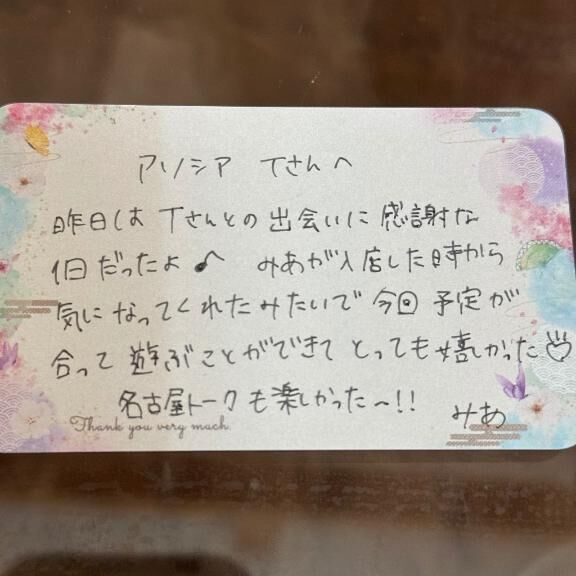 アソシア Tさんへ
昨日はTさんとの出会いに感謝な
1日だったよ♪ みあが入店した時から
気になってくれたみたいで今回予定が
合って遊ぶことができてとっても嬉しかった♡
名古屋トークも楽しかった~!!
みあ
Thank you very much.